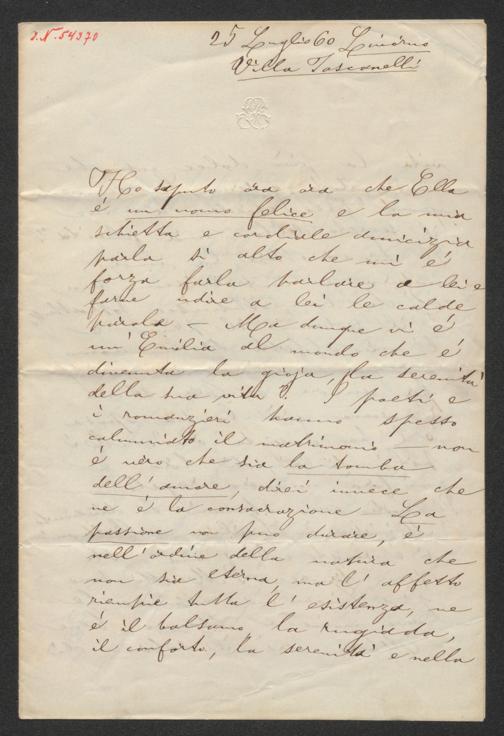 J.N. 54370
25 Luglio 60 Livorno
Villa Toscanelli
Ho saputo ora ora che Ella
é un uomo felice e la mia
schietta e cordiale amicizia
parla si alto che mi é
forza farla parlare a lei e
farne udire a lei le calde
parole – Ma dunque vi é
un' Emilia al mondo che é
divenuta la gioja, la serenità
della sua vita? I poeti e
i romanzieri hanno spesso
calunniato il matrimonio – non
é vero che sia la tomba
dell' amore, direi invece che
ne é la consacrazione La
passione non puo durare, é
nell' ordine della natura che
non sia eterna, ma l' affetto
riempie tutta l' esistenza, ne
é il balsamo la rugiada,
il conforto, la serenità e nella